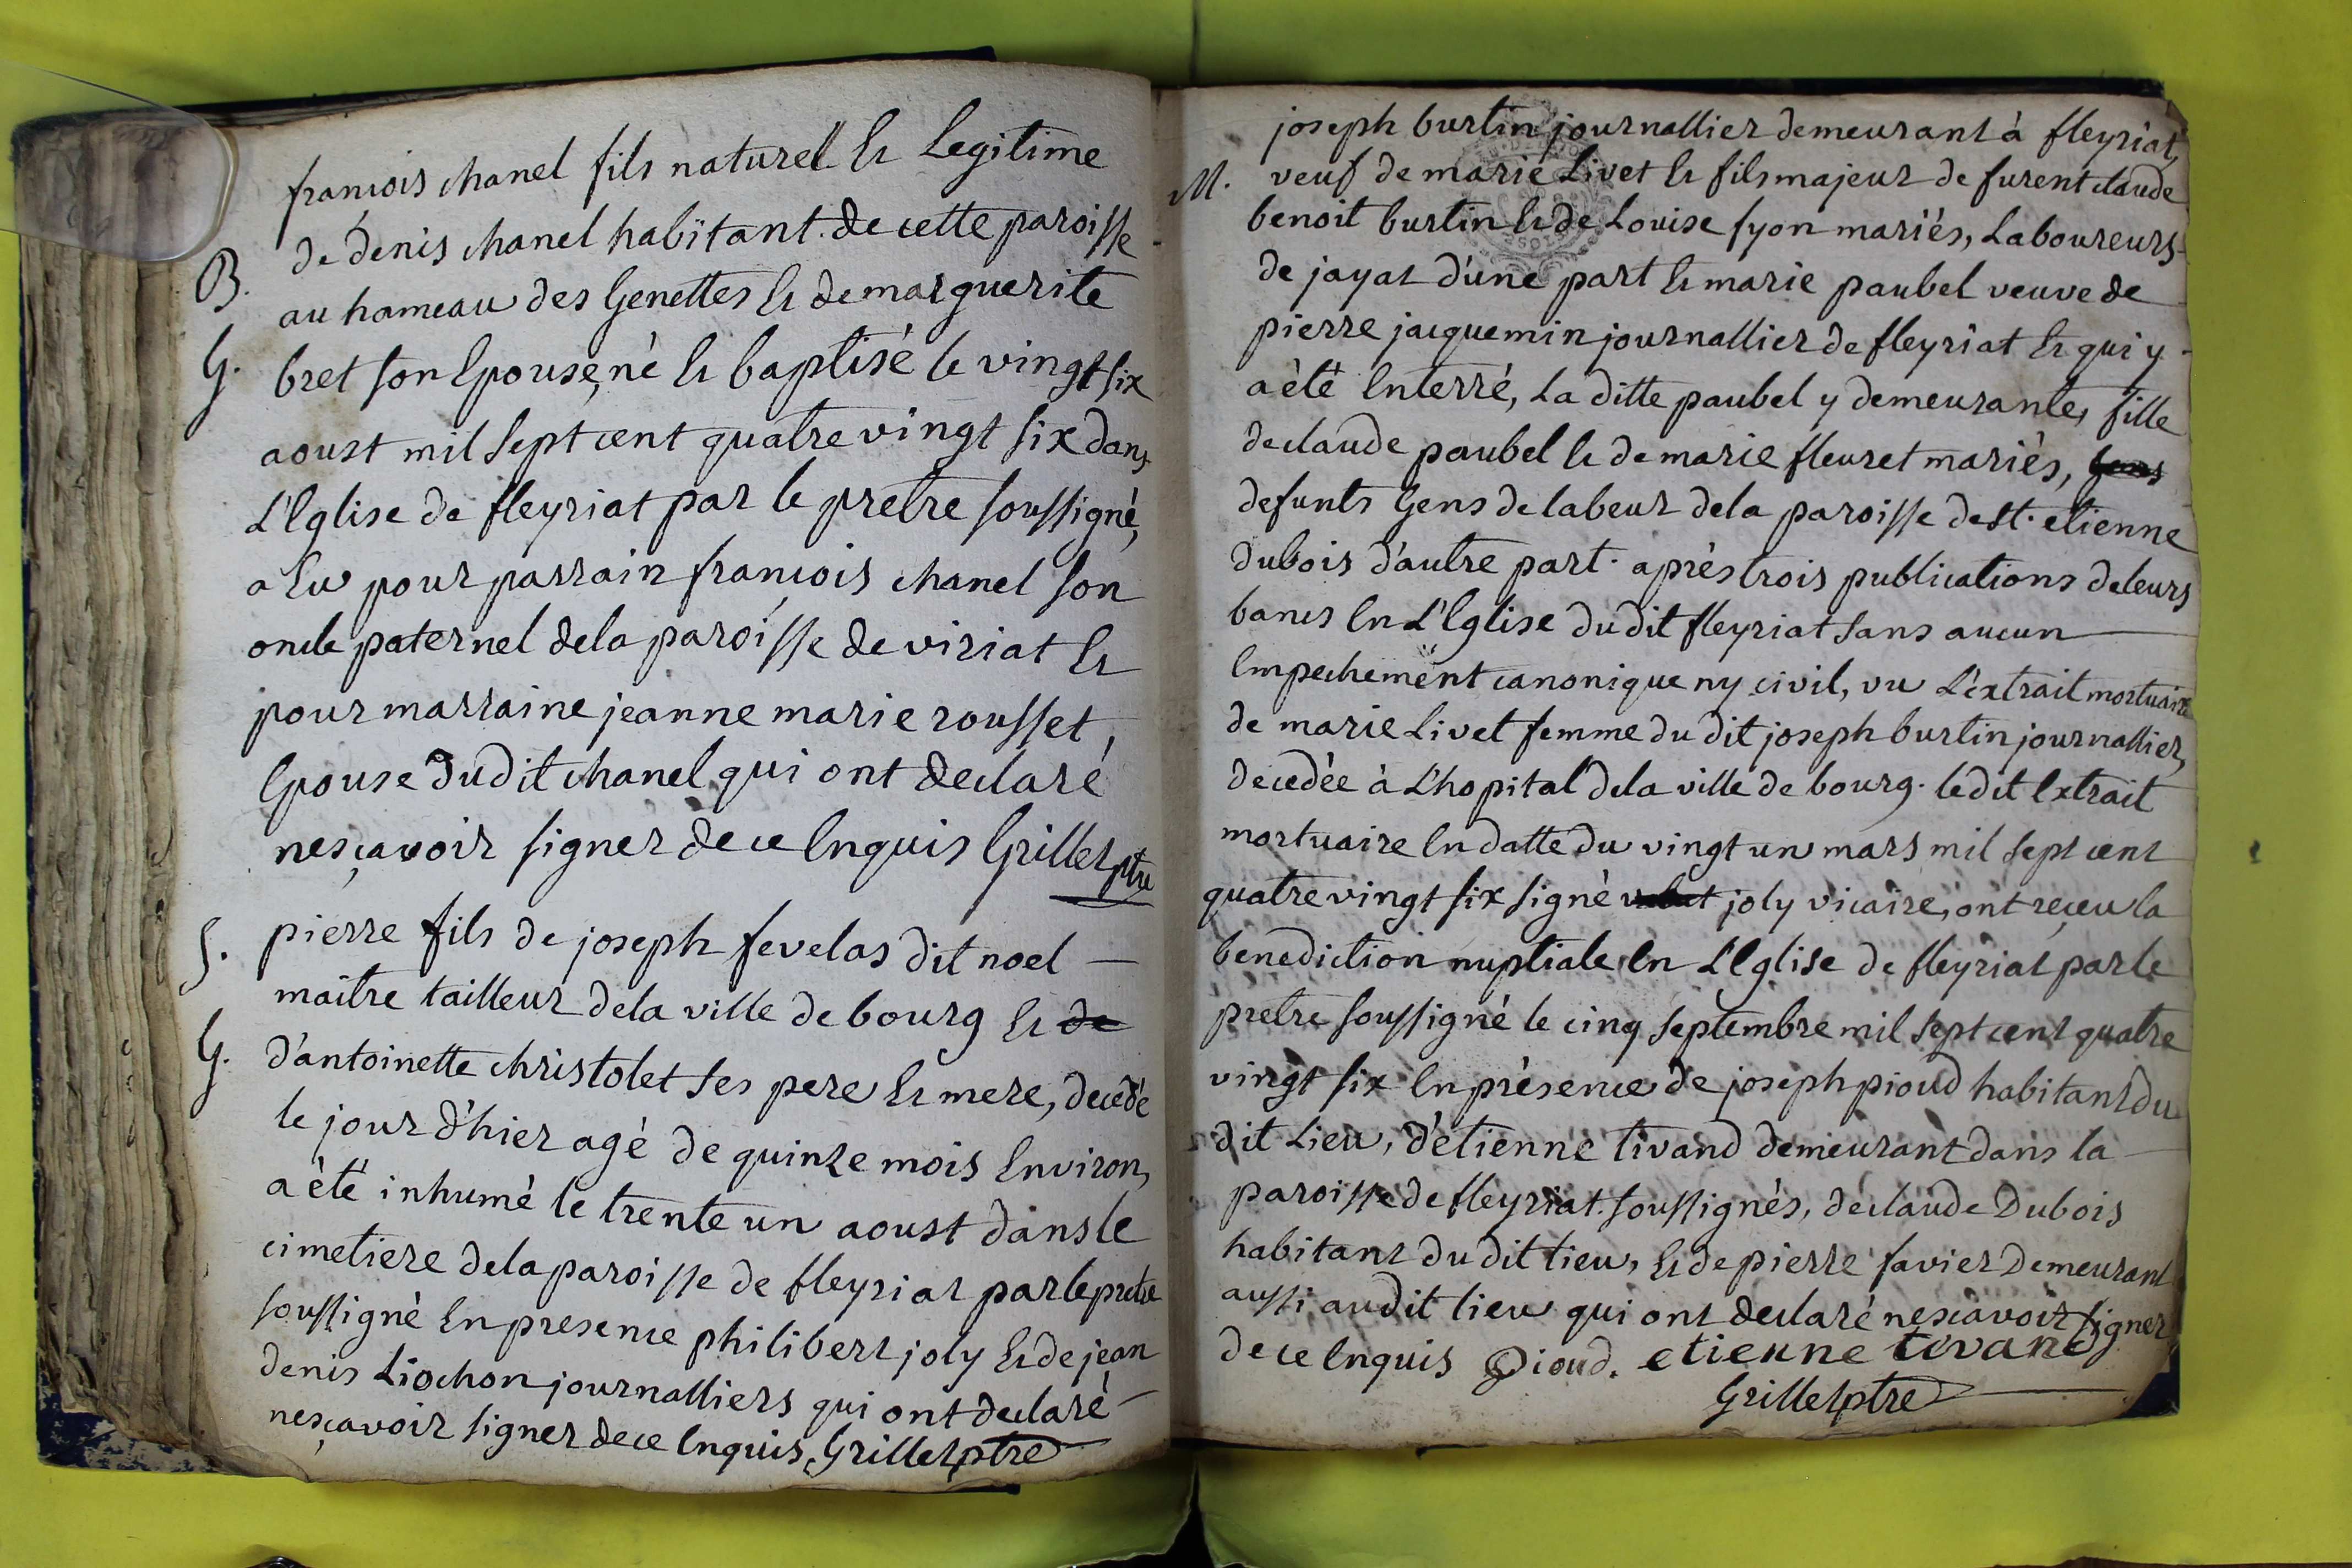 françois chanel fils naturel et Legitime
de denis chanel habïtant de cette paroisse
B.
au hameau des Genettes et de marguerite
G.
bret son Epouse, né et baptisé le vingt six
aoust mil sept cent quatre vingt six dans
L'Eglise de fleyriat par le pretre soussigné,
a Eu pour parrain françois chanel son
oncle paternel dela paroisse de viriat Et
pour marraine jeanne marie rousset,
Epouse dudit chanel qui ont declaré
nesçavoir signer de ce Enquis Grillet ptre
S.
pierre fils de joseph fevelas dit noel
maitre tailleur dela ville de bourg Et de
G.
d'antoinette christolet ses pere Et mere, decedé
le jour d'hier agé de quinze mois Environ,
a èté inhumé le trente un aoust dans le
cimetiere dela paroisse de fleyriat par le pretre
soussigné En presence philibert joly Et de jean
denis Liochon journalliers qui ont declaré
nesçavoir signer dece Enquis, Grillet ptre
joseph burtin journallier demeurant à fleyriat,
M.
veuf de marie Livet Et fils majeur de furent claude
benoit burtin Et de Louise fyon mariés, Laboureurs
de jayat d'une part Et marie paubel veuve de
pierre jacquemin journallier de fleyriat Et qui y
a èté Enterré, La ditte paubel y demeurante, fille
de claude paubel Et de marie fleuret mariés,
defunts Gens de labeur dela paroisse de st. etienne
dubois d'autre part. après trois publications de leurs
bancs En L'Eglise du dit fleyriat sans aucun
Empechement canonique ny civil, vu L'extrait mortuaire
de marie Livet femme du dit joseph burtin journallier,
decedée à L'hopital dela ville de bourg. ledit Extrait
mortuaire En datte du vingt un mars mil sept cent
quatre vingt six signé joly vicaire, ont reçeu la
benediction nuptiale En L'Eglise de fleyriat par le
pretre soussigné le cinq septembre mil sept cent quatre
vingt six En présence de joseph pioud habitant du
dit Lieu, d'etienne tivand demeurant dans la
paroisse de fleyriat soussignés, declaude Dubois
habitant du dit lieu, Et de pierre favier Demeurant
aussi audit lieu qui ont declaré nescavoir signer
de ce Enquis Pioud. etienne tivand
Grillet ptre